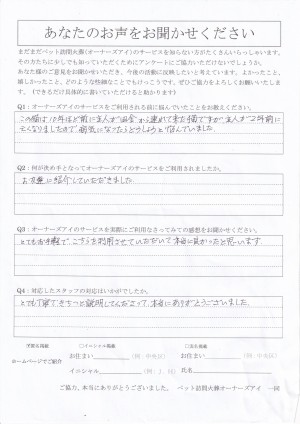 あなたのお声をお聞かせください
まだまだペット訪問火葬(オーナーズアイ)のサービスを知らない方がたくさんいらっしゃいます。
その方たちに少しでも知っていただくためにアンケートにご協力いただけないでしょうか。
あなた様のご意見をお聞かせいただき、今後の活動に反映したいと考えています。よかったこと、
嬉しかったこと、どのような些細なことでもけっこうです。ぜひご協力をよろしくお願いいたします。
(できるだけ具体的に書いていただけると助かります)
Q1：オーナーズアイのサービスをご利用される前に悩んでいたことをお教えください。
この猫は10年ほど前に主人が
亡くなりましたので病気になったらどうしようと悩んでいました。
Q2：何が決め手となってオーナーズアイのサービスをご利用されましたか。
お友達に紹介していただきました。
Q3：オーナーズアイのサービスを実際にご利用なさってみての感想をお聞かせください。
とてもお手軽で、こちらを利用させていただいて本当に良かったと思います。
Q4：対応したスタッフの対応はいかがでしたか。
とても丁寧できちっと説明してくださって、本当にありがとうございました。
□イニシャル掲載
お住まい (例：中央区) お住まい (例：中央区)
ホームページでご紹介
イニシャル 氏名
ご協力、本当にありがとうございました。 ペット訪問火葬オーナーズアイ 一同